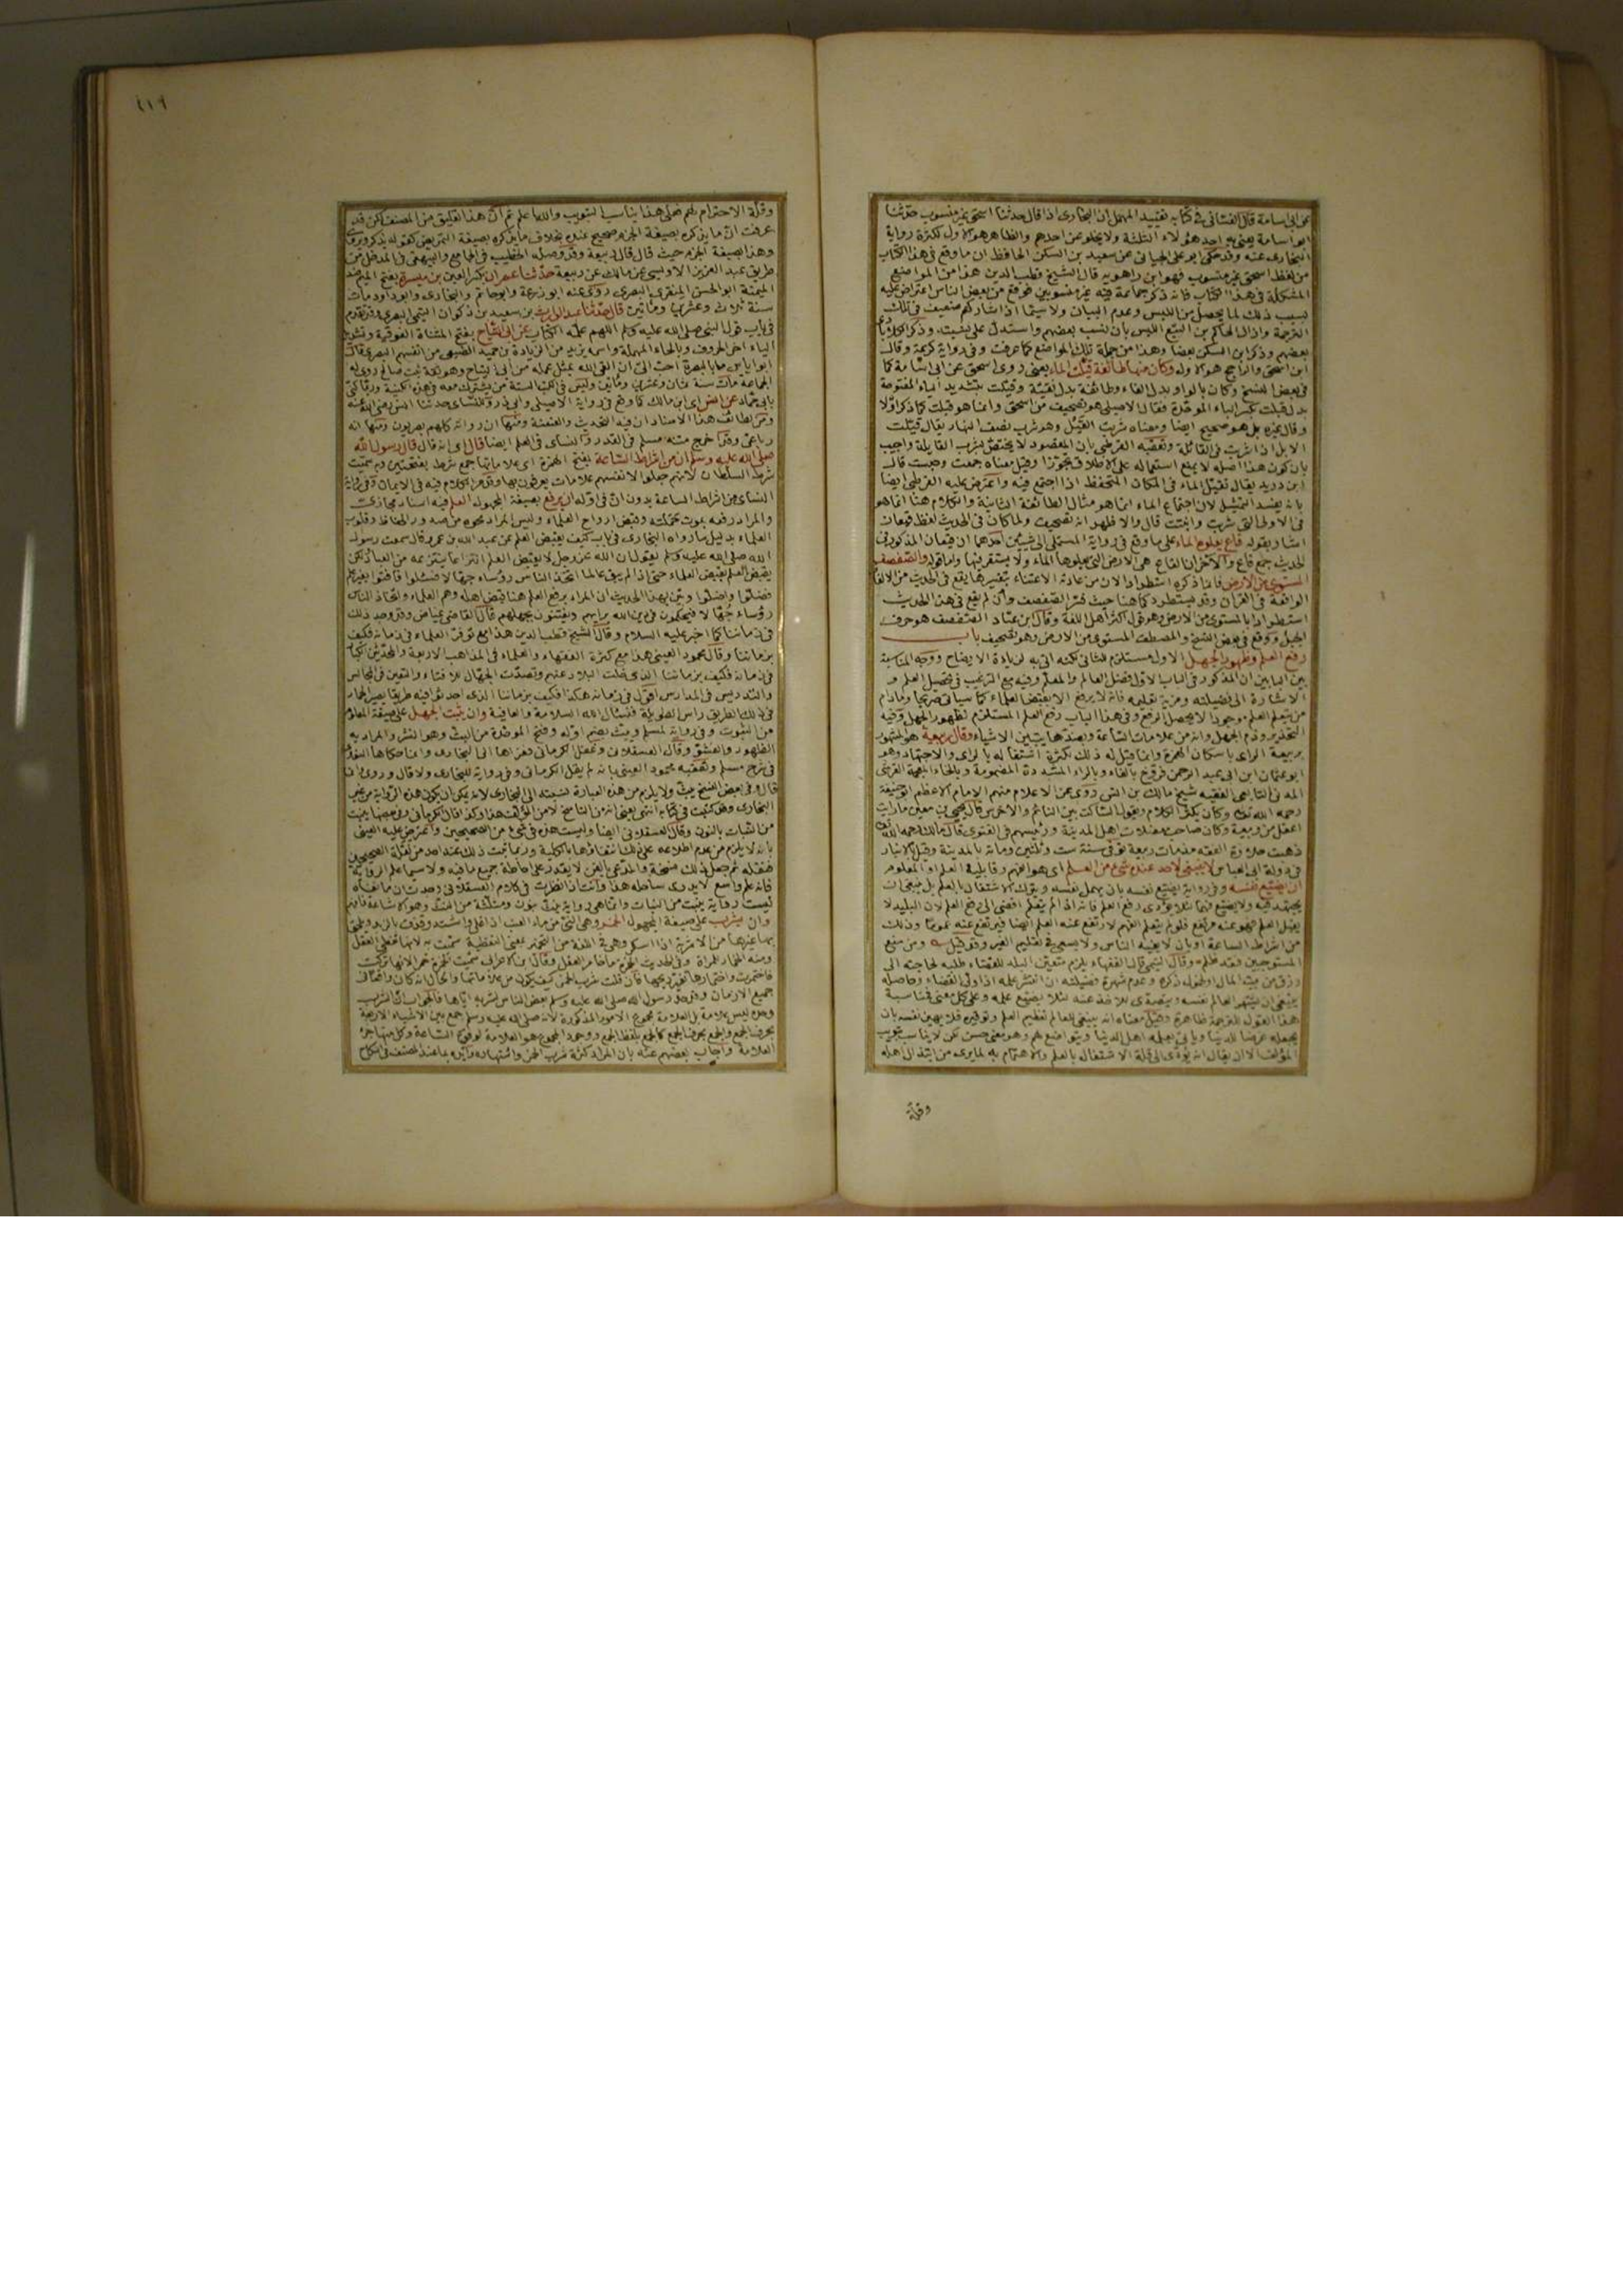 عن ابى اسامة قال الغسانى فى كتابه تقييد المهمل ان البخارى اذا قال حدثنا اسحق غير منسوب حدثنا
ابو اسامة يعنى به احد هؤلاء الثلثة ولا يخلو عن احدهم والظاهر هو الاول لكثرة رواية
البخارى عنه وقد حكى ابو على الجيانى عن سعيد بن السكن الحافظ ان ما وقع فى هذا الكتاب
من لفظ اسحق غير منسوب فهو ابن راهويه قال الشيخ قطب الدين هذا من المواضع
المشكلة فى هذا الكتاب فانه ذكر جماعة فيه غير منسوبين فوقع من بعض الناس اعتراض عليه
بسبب ذلك لما يحصل من اللبس وعدم البيان ولا سيما اذا شاركهم ضعيف فى تلك
الترجمة وازال الحاكم بن البيع اللبس بان نسب بعضهم واستدل على نسبته وذكر الكلاباذى
بعضهم وذكر ابن السكن بعضا وهذا من جملة تلك المواضع كما عرفت وفى رواية كريمة وقال
ابن اسحق والراجح هو الاول وكان منها طائفة قيلت الماء يعنى روى اسحق عن ابى اسامة كما
فى بعض النسخ وكان بالواو بدل الفاء وطائفة بدل نقية وقيلت بتشديد الياء المفتوحة
بدل قبلت بكسر الباء الموحدة فقال الاصيلى هو تصحيف من اسحق وانما هو قبلت كما ذكر اولا
وقال غيره بل هو صحيح ايضا ومعناه شربت القيل وهو شرب نصف النهار يقال قيلت
الابل اذا شربت فى القائلة وتعقبه القرطبى بان المقصود لا يختص بشرب القايلة واجيب
بان كون هذا اصله لا يمنع استعماله على الاطلاق تجوزا وقيل معناه جمعت وحبست قال
ابن دريد يقال تقيل الماء فى المكان المنخفض اذا اجتمع فيه واعترض عليه القرطبى ايضا
بانه يفسد التمثيل لان اجتماع الماء انما هو مثال الطائفة الثانية والكلام هنا انما هو
فى الاولى التى شربت وانبتت قال والاظهر انه تصحيف ولما كان فى الحديث لفظ قيعان
اشار بقوله قاع يعلوه الماء على ما وقع فى رواية المستملى الى شيئين احدهما ان قيعان المذكور فى
الحديث جمع قاع والآخر ان القاع هى الارض التى يعلوها الماء ولا يستقر فيها واما قوله والصفصف
المستوى من الارض فانما ذكره استطرادا لان من عادته الاعتناء بتفسير ما يقع فى الحديث من الالفاظ
الواقعة فى القران وقد يستطرد كما هنا حيث فسر الصفصف وان لم يقع فى هذا الحديث
استطرادا بالمستوى من الارض وهو قول اكثر اهل اللغة وقال ابن عباد الصفصف هو حرف
الجبل ووقع فى بعض النسخ والمصطف المستوى من الارض وهو تصحيف باب
رفع العلم وظهور الجهل الاول مستلزم للثانى لكنه اتى به لزيادة الايضاح ووجه المناسبة
بين البابين ان المذكور فى الباب الاول فضل العالم والمعلم وفيه مع الترغيب فى تحصيل العلم و
الاشارة الى فضيلته ومزية تعليمه فانه لا يرفع الا بقبض العلماء كما سياتى صريحا ومادام
من يتعلم العلم موجودا لا يحصل الرفع وفى هذا الباب رفع العلم المستلزم لظهور الجهل وفيه
التحذير وذم الجهل وانه من علامات الساعة وبضدها يتبين الاشياء وقال ربيعة هو المشهور
بربيعة الراى باسكان الهمزة وانما قيل له ذلك لكثرة اشتغاله بالراى والاجتهاد وهو
ابو عثمان ابن ابى عبد الرحمن فروخ بالفاء وبالراء المشددة المضمومة وبالخاء المعجمة القرشى
المدنى التابعى الفقيه شيخ مالك بن انس روى عنه الاعلام منهم الامام الاعظم ابو حنيفة
رحمه الله تعالى وكان يكثر الكلام ويقول الساكت بين النائم والاخرس قال يحيى بن سعيد ما رايت
اعقل من ربيعة وكان صاحب معضلات اهل المدينة ورئيسهم فى الفتوى قال مالك رحمه الله
ذهبت حلاوة الفقه منذ مات ربيعة توفى سنة ست وثلثين ومائة بالمدينة وقيل بالانبار
فى دولة ابى العباس لا ينبغى لاحد عنده شئ من العلم اى هو الفهم وقابلية العلم او المعلوم
ان يضيع نفسه وفى رواية يضيع نفسه بان يهمل نفسه ويترك الاشتغال بالعلم بل ينبغى ان
يجتهد فيه ولا يضيع فهما لئلا يؤدى رفع العلم فانه اذا لم يتعلم افضى الى رفع العلم لان البليد لا
يقبل العلم فهو عنه مرتفع فلو لم يتعلم الفهم لارتفع عنه العلم ايضا فيرتفع عنه عموما وذلك
من اشراط الساعة او بان لا يفيد الناس ولا يسعى فى تعليم الغير وقد قيل ومن منع
المستوجبين فقد ظلم وقال التيمى قال الفقهاء يلزم متعين البلد للقضاء طلبه لحاجته الى
رزق من بيت المال او لخمول ذكره وعدم شهرة فضيلته ان انتشر علمه اذا ولى القضاء وحاصله
ينبغى ان يشهر العالم نفسه ويتصدى للاخذ عنه لئلا يضيع علمه وعلى كل معنى فمناسبة
هذا القول للترجمة ظاهرة وقيل معناه انه ينبغى للعالم تعظيم العلم وتوقيره فلا يهين نفسه بان
يجعله عرضا للدنيا وياتى بعلمه اهل الدنيا ويتواضع لهم وهو معنى حسن لكن لا يناسب تبويب
المؤلف الا ان يقال انه يؤدى الى قلة الاشتغال بالعلم والاهتمام به لما يرى من ابتذال اهله
وقلة
٤١٩
وقلة الاحترام لهم فعلى هذا يناسب التبويب والله اعلم ثم ان هذا تعليق من المصنف لكن قد
عرفت ان ما يذكره بصيغة الجزم صحيح عنده بخلاف ما يذكره بصيغة التمريض كقوله يذكر ويروى
وهذا بصيغة الجزم حيث قال قال ربيعة وقد وصله الخطيب فى الجامع والبيهقى فى المدخل من
طريق عبد العزيز الاويسى عن مالك عن ربيعة حدثنا عمران بكسر العين بن ميسرة بفتح الميم ضد
الميمنة ابو الحسن المنقرى البصرى روى عنه ابو زرعة وابو حاتم والبخارى وابو داود مات
سنة ثلاث وعشرين ومأتين قال حدثنا عبد الوارث بن سعيد بن ذكوان التيمى البصرى وقد تقدم
فى باب قول النبى صلى الله عليه وسلم اللهم علمه الكتاب عن ابى التياح بفتح المثناة الفوقية وتشديد
الياء اخر الحروف وبالحاء المهملة واسمه يزيد من الزيادة بن حميد الضبعى من انفسهم البصرى قال
ابو اياس ما بالبصرة احب الى ان القى الله بمثل عمله من ابى التياح وهو ثقة ثبت صالح روى له
الجماعة مات سنة ثمان وعشرين ومائة وليس فى الكتب الستة من يشترك معه فى هذه الكنية وربما كنى
بابى حماد عن انس اى ابن مالك كما وقع فى رواية الاصيلى وابى ذر وللنسائى حدثنا انس رضى الله عنه
ومن لطائف هذا الاسناد ان فيه التحديث والعنعنة ومنها ان رواته كلهم بصريون ومنها انه
رباعى وقد اخرج متنه مسلم فى القدر والنسائى فى العلم ايضا قال اى انه قال قال رسول الله
صلى الله عليه وسلم ان من اشراط الساعة بفتح الهمزة اى علاماتها جمع شرط بفتحتين وبه سميت
شرط السلطان لانهم جعلوا لانفسهم علامات يعرفون بها وقد مر الكلام فيه فى الايمان وفى رواية
النسائى من اشراط الساعة بدون ان فى اوله ان يرفع بصيغة المجهول العلم فيه اسناد مجازى
والمراد رفعه بموت حملته وقبض ارواح العلماء وليس المراد محوه من صدور الحفاظ وقلوب
العلماء بدليل ما رواه البخارى فى باب كيف يقبض العلم عن عبد الله بن عمرو قال سمعت رسول
الله صلى الله عليه وسلم يقول ان الله عز وجل لا يقبض العلم انتزاعا ينتزعه من العباد لكن
يقبض العلم بقبض العلماء حتى اذا لم يبق عالما اتخذ الناس رؤساء جهالا فسئلوا فافتوا بغير علم
فضلوا واضلوا وتبين بهذا الحديث ان المراد برفع العلم هنا قبض اهله وهم العلماء واتخاذ الناس
رؤساء جهالا فيحكمون فى دين الله برايهم ويفتون بجهلهم قال القاضى عياض وقد وجد ذلك
فى زماننا كما اخبر عليه السلام وقال الشيخ قطب الدين هذا مع توفر العلماء فى زمانه فكيف
بزماننا وقال محمود العينى هذا مع كثرة الفقهاء والعلماء فى المذاهب الاربعة والمحدثين الكبار
فى زمانه فكيف بزماننا الذى خلت البلاد عنهم وتصدرت الجهال للافتاء والتعين فى المجالس
والتدريس فى المدارس اقول فى زمانه هكذا فكيف بزماننا الذى
فى ذلك الطريق راس الطويلة فنسأل الله السلامة والعافية وان يثبت الجهل على صيغة المعلوم
من الثبوت وفى رواية لمسلم ويبث بضم اوله وفتح الموحدة من البث وهو النشر والمراد به
الظهور والفشو وقال العسقلانى وغفل الكرمانى فعزاها الى البخارى وانما حكاها النووى
فى شرح مسلم وتعقبه محمود العينى بانه لم يقل الكرمانى وفى رواية للبخارى ولا قال وروى انما
قال وفى بعض النسخ يبث ولا يلزم من هذه العبارة نسبته الى البخارى لانه يمكن ان يكون هذه الرواية من غير
البخارى وقد كتبت فى كتابه انتهى يعنى انه من الناسخ لا من المؤلف هذا وكذا قال الكرمانى وفى بعضها ينبت
من النبات بالنون وقال العسقلانى ايضا وليست هذه فى شئ من الصحيحين واعترض عليه العينى
بانه لا يلزم من عدم اطلاعه على ذلك انتفاؤها بالكلية وربما ثبت ذلك عند احد من نقلة الصحيحين
فنقله ثم جعل ذلك نسخة والمدعى بالفن لا يقدر على احاطة جميع ما فيه ولا سيما علم الرواية
فانه علم واسع لا يدرى ساحله هذا وانت اذا نظرت فى كلام العسقلانى وجدت ان ما نفاه
ليست رواية ينبت من النبات وانما هى رواية ينث بنون ومثلثة من النث وهو الاشاعة فافهم
وان يشرب على صيغة المجهول الخمر وهى النى من ماء العنب اذا غلى واشتد وقذف بالزبد ويلحق
بها غيرها من الاشربة اذا اسكر وهى فى اللغة من التخمير بمعنى التغطية سميت به لانها تغطى العقل
ومنه الخمار للمراة وفى الحديث الخمر ما خامر العقل وقال ابن الاعرابى سميت الخمر خمرا لانها تركت
فاختمرت واختمارها تغير ريحها فان قلت شرب الخمر كيف يكون من علاماتها والحال انه كان واقعا فى
جميع الازمان وقد حد رسول الله صلى الله عليه وسلم بعض الناس لشربه اياها فالجواب ان الشرب
وحده ليس بعلامة بل العلامة مجموع الامور المذكورة لانه صلى الله عليه وسلم جمع بين الاشياء الاربعة
بحرف الجمع والجمع بحرف الجمع كالجمع بلفظ الجمع ووجود المجموع هو العلامة لوقوع الساعة وكل منها جزء
العلامة واجاب بعضهم عنه بان المراد كثرة شرب الخمر واشتهاره وايد بما عند المصنف فى النكاح